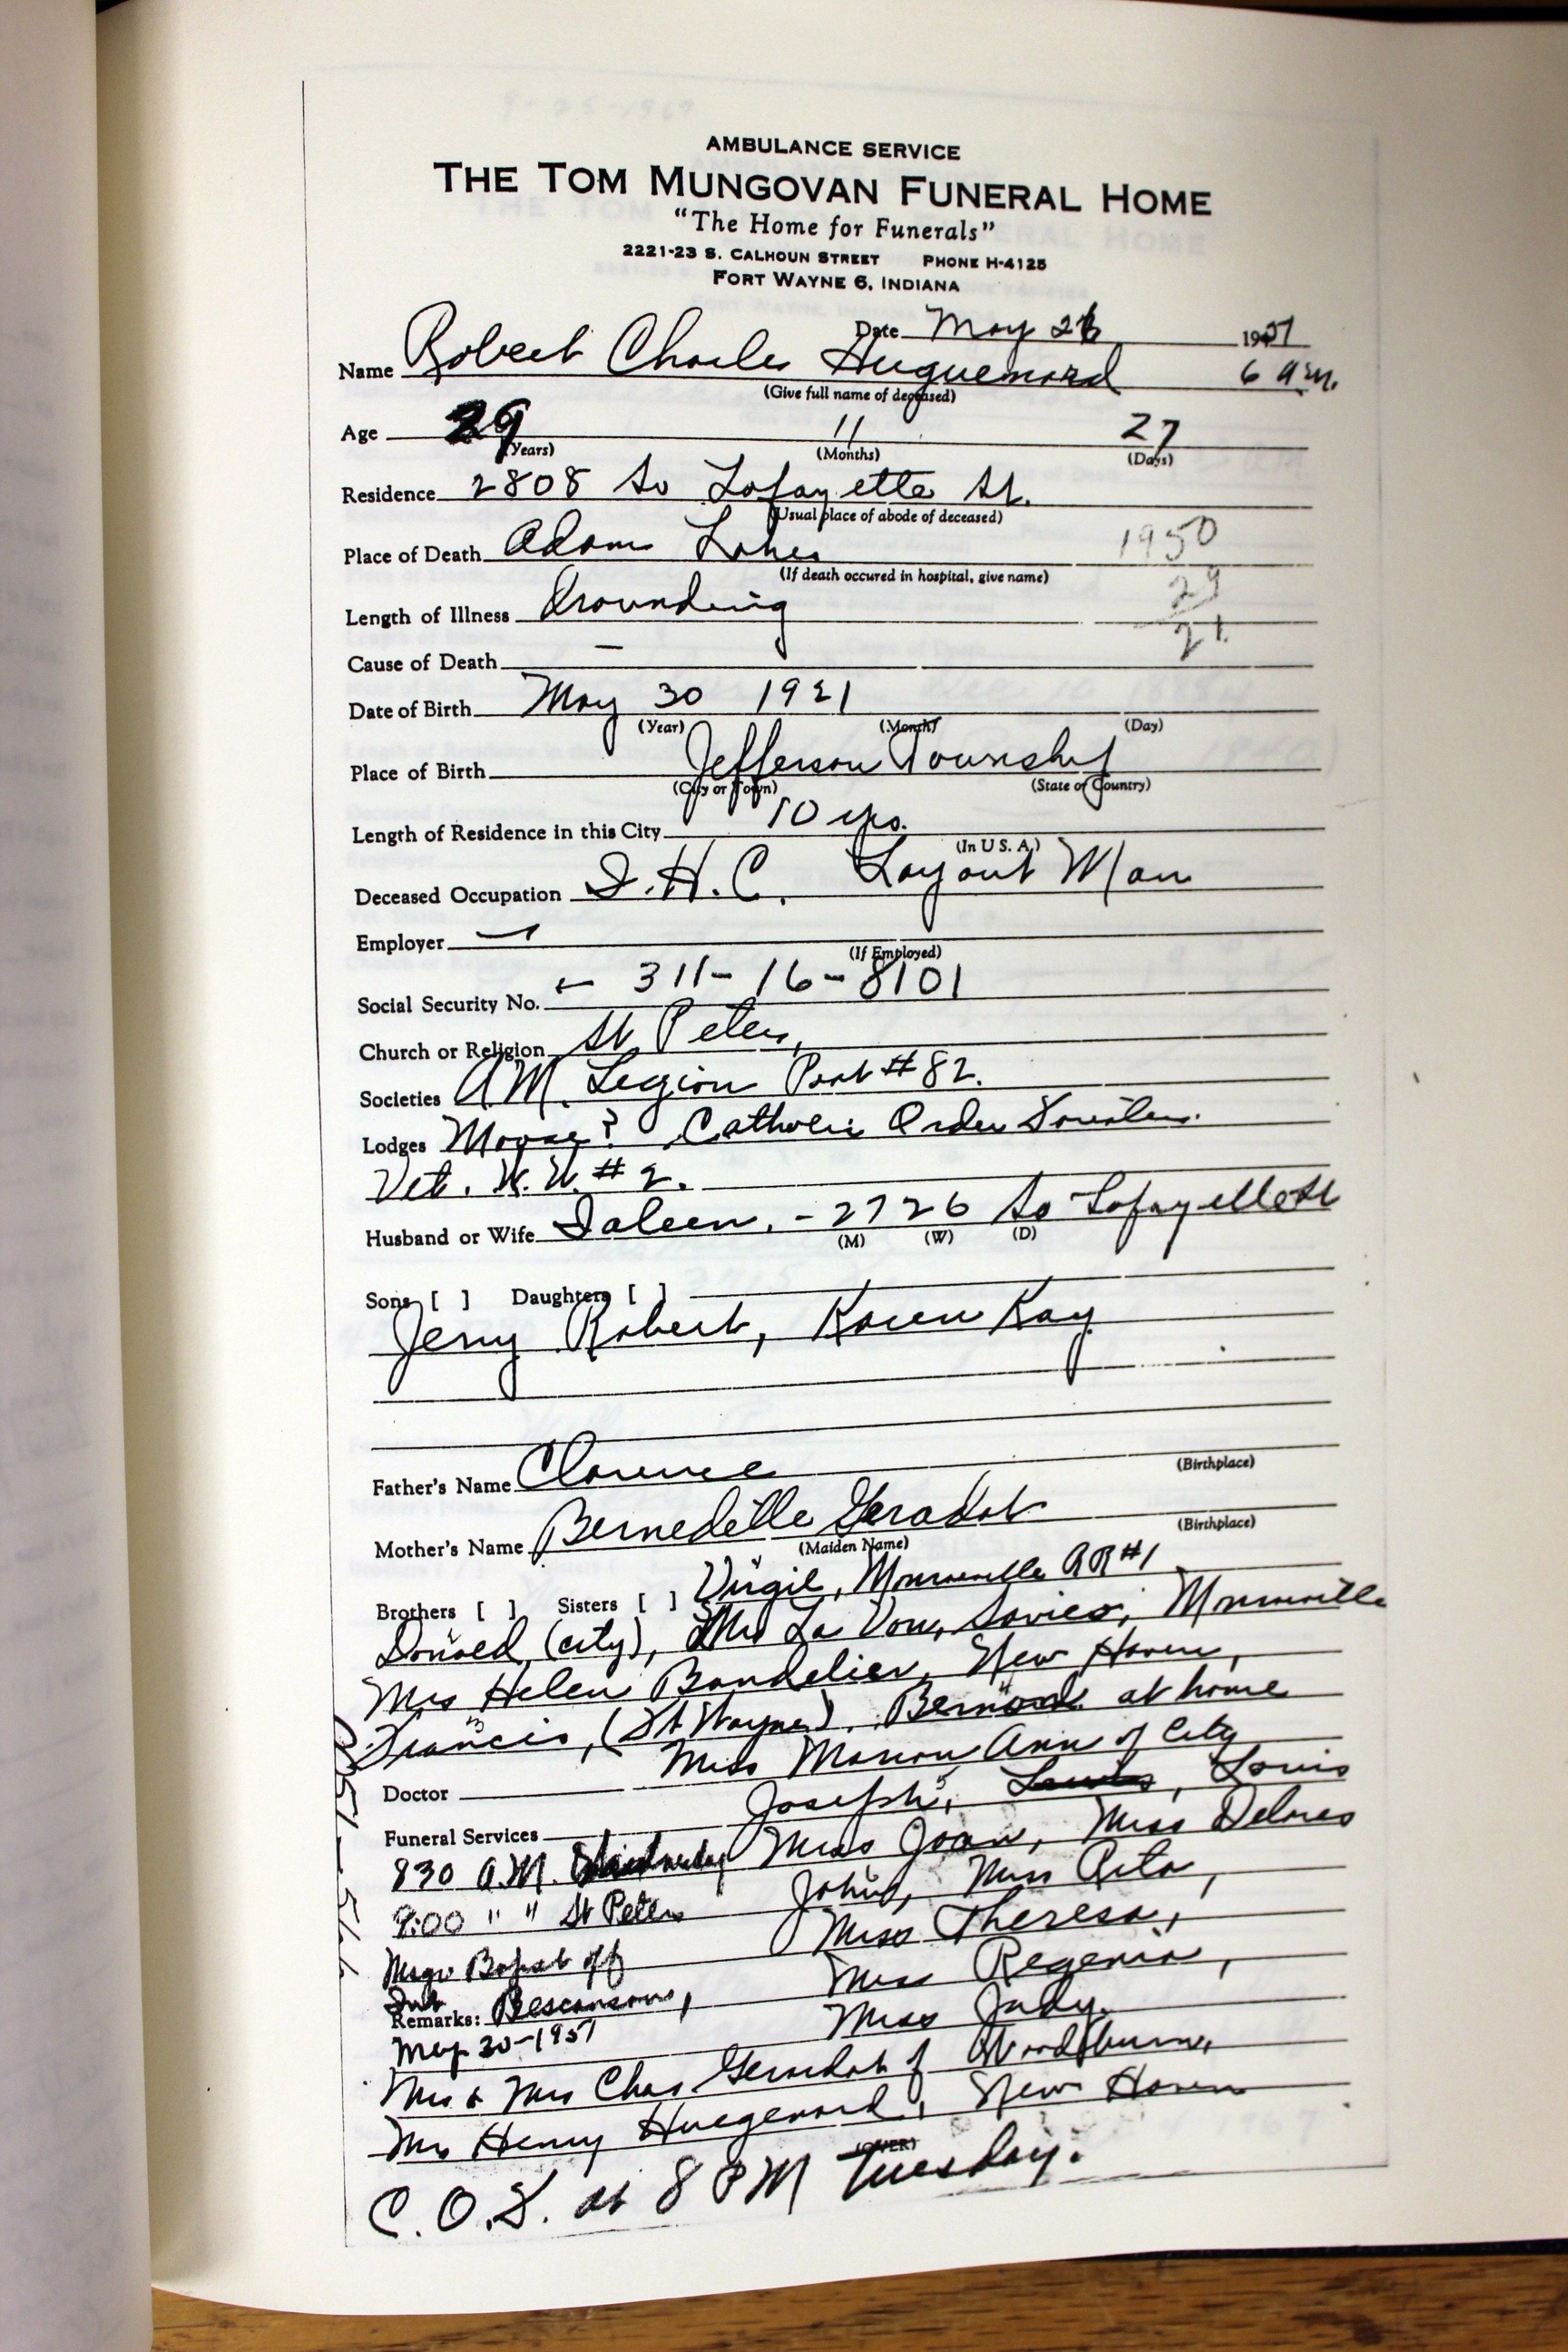 AMBULANCE SERVICE
THE TOM MUNGOVAN FUNERAL HOME
"The Home for Funerals"
2221-23 S. CALHOUN STREET PHONE H-4125
FORT WAYNE 6, INDIANA
Date May 26 1951
Name Robert Charles Huguenard 6 a.m.
(Give full name of deceased)
Age 29 11 27
(Years) (Months) (Days)
Residence 2808 So Lafayette St.
(Usual place of abode of deceased)
Place of Death Adam Lakes 1950
(If death occured in hospital, give name) 29
Length of Illness Drownding 21
Cause of Death —
Date of Birth May 30 1921
(Year) (Month) (Day)
Place of Birth Jefferson Township
(City or Town) (State or Country)
Length of Residence in this City 10 yrs.
(In U S. A.)
Deceased Occupation I.H.C. Layout Man
Employer —
(If Employed)
Social Security No. 311-16-8101
Church or Religion St Peters,
Societies A.M. Legion Post #82.
Lodges Moose? Catholic Order Foresters.
Vet. W.W. #2.
Husband or Wife Ialeen. - 2726 So Lafayette St
(M) (W) (D)
Sons [ ] Daughters [ ]
Jerry Robert, Karen Kay
Father's Name Clarence
(Birthplace)
Mother's Name Bernedette Geradot
(Maiden Name) (Birthplace)
Brothers [ ] Sisters [ ] Virgil, Monroeville RR #1
Donald, (city), Mrs La Von, Monroeville
Mrs Helen Bandelier, New Haven,
Francis, (Ft Wayne), Bernard at home
Miss Marion Ann of City
Doctor
Joseph, Louis
Funeral Services
830 A.M. Wednesday Miss Joan, Miss Delores
9:00 " " St Peters John, Miss Rita,
Msgr Bapst off Miss Theresa,
Int Miss Regenia,
Remarks: Besancon,
Miss Judy.
May 30-1951
Mr & Mrs Chas Geradot of Woodburn,
Mr Henry Huegenard, New Haven
(OVER)
C.O.F. at 8 PM Tuesday.